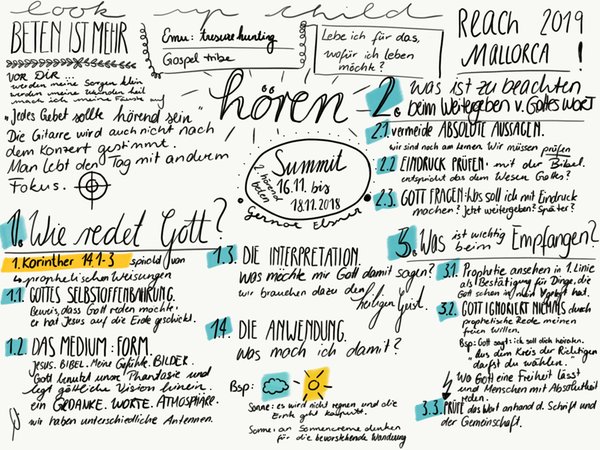 look up child
BETEN IST MEHR
VOR DIR...
werden meine Sorgen klein
werden meine Wunden heil
mach ich meine Fäuste auf
"Jedes Gebet sollte hörend sein"
Die Gitarre wird auch nicht nach
dem Konzert gestimmt.
Man lebt den Tag mit anderem
Fokus.
Emu: tresure hunting
Gospel tribe
Lebe ich für das,
wofür ich leben
möchte?
Reach 2019
MALLORCA!
hören
Summit
hörend beten
16.11. bis
18.11.2018
Gernot Elsner
1. Wie redet Gott?
1. Korinther 14,1-3 spricht von
prophetischen Weisungen
1.1. GOTTES SELBSTOFFENBAHRUNG.
Beweis, dass Gott reden möchte:
er hat Jesus auf die Erde geschickt.
1.2. DAS MEDIUM: FORM
JESUS. BIBEL. Meine Gefühle. BILDER.
Gott benutzt unsre Phantasie und
legt göttliche Vision hinein.
ein GEDANKE. WORTE. ATMOSPHÄRE.
wir haben unterschiedliche Antennen.
1.3. DIE INTERPRETATION.
Was möchte mir Gott damit sagen?
wir brauchen dazu den
Heiligen Geist.
1.4. DIE ANWENDUNG.
Was mach ich damit?
Bsp:
Sonne: es wird nicht regnen und die
Ernte geht kaputt.
Sonne: an Sonnencreme denken
für die bevorstehende Wanderung
2. was ist zu beachten
beim Weitergeben v. Gottes Wort
2.1. vermeide ABSOLUTE AUSSAGEN.
wir sind noch am lernen. Wir müssen prüfen
2.2 EINDRUCK PRÜFEN. mit der Bibel.
entspricht das dem Wesen Gottes?
2.3. GOTT FRAGEN: Was soll ich mit Eindruck
machen? Jetzt weitergeben? Später?
3. Was ist wichtig
beim Empfangen?
3.1. Prophetie ansehen in 1. Linie
als Bestätigung für Dinge, die
Gott schon in mich gelegt hat.
3.2. GOTT IGNORIERT NIEMALS durch
prophetische Rede meinen
freien Willen.
Bsp: Gott sagt: ich soll dich heiraten.
"aus dem Kreis der Richtigen
darfst du wählen."
Wo Gott eine Freiheit lässt
und Menschen mit Absolutheit
reden.
3.3. PRÜFE das Wort anhand d. Schrift und
der Gemeinschaft.